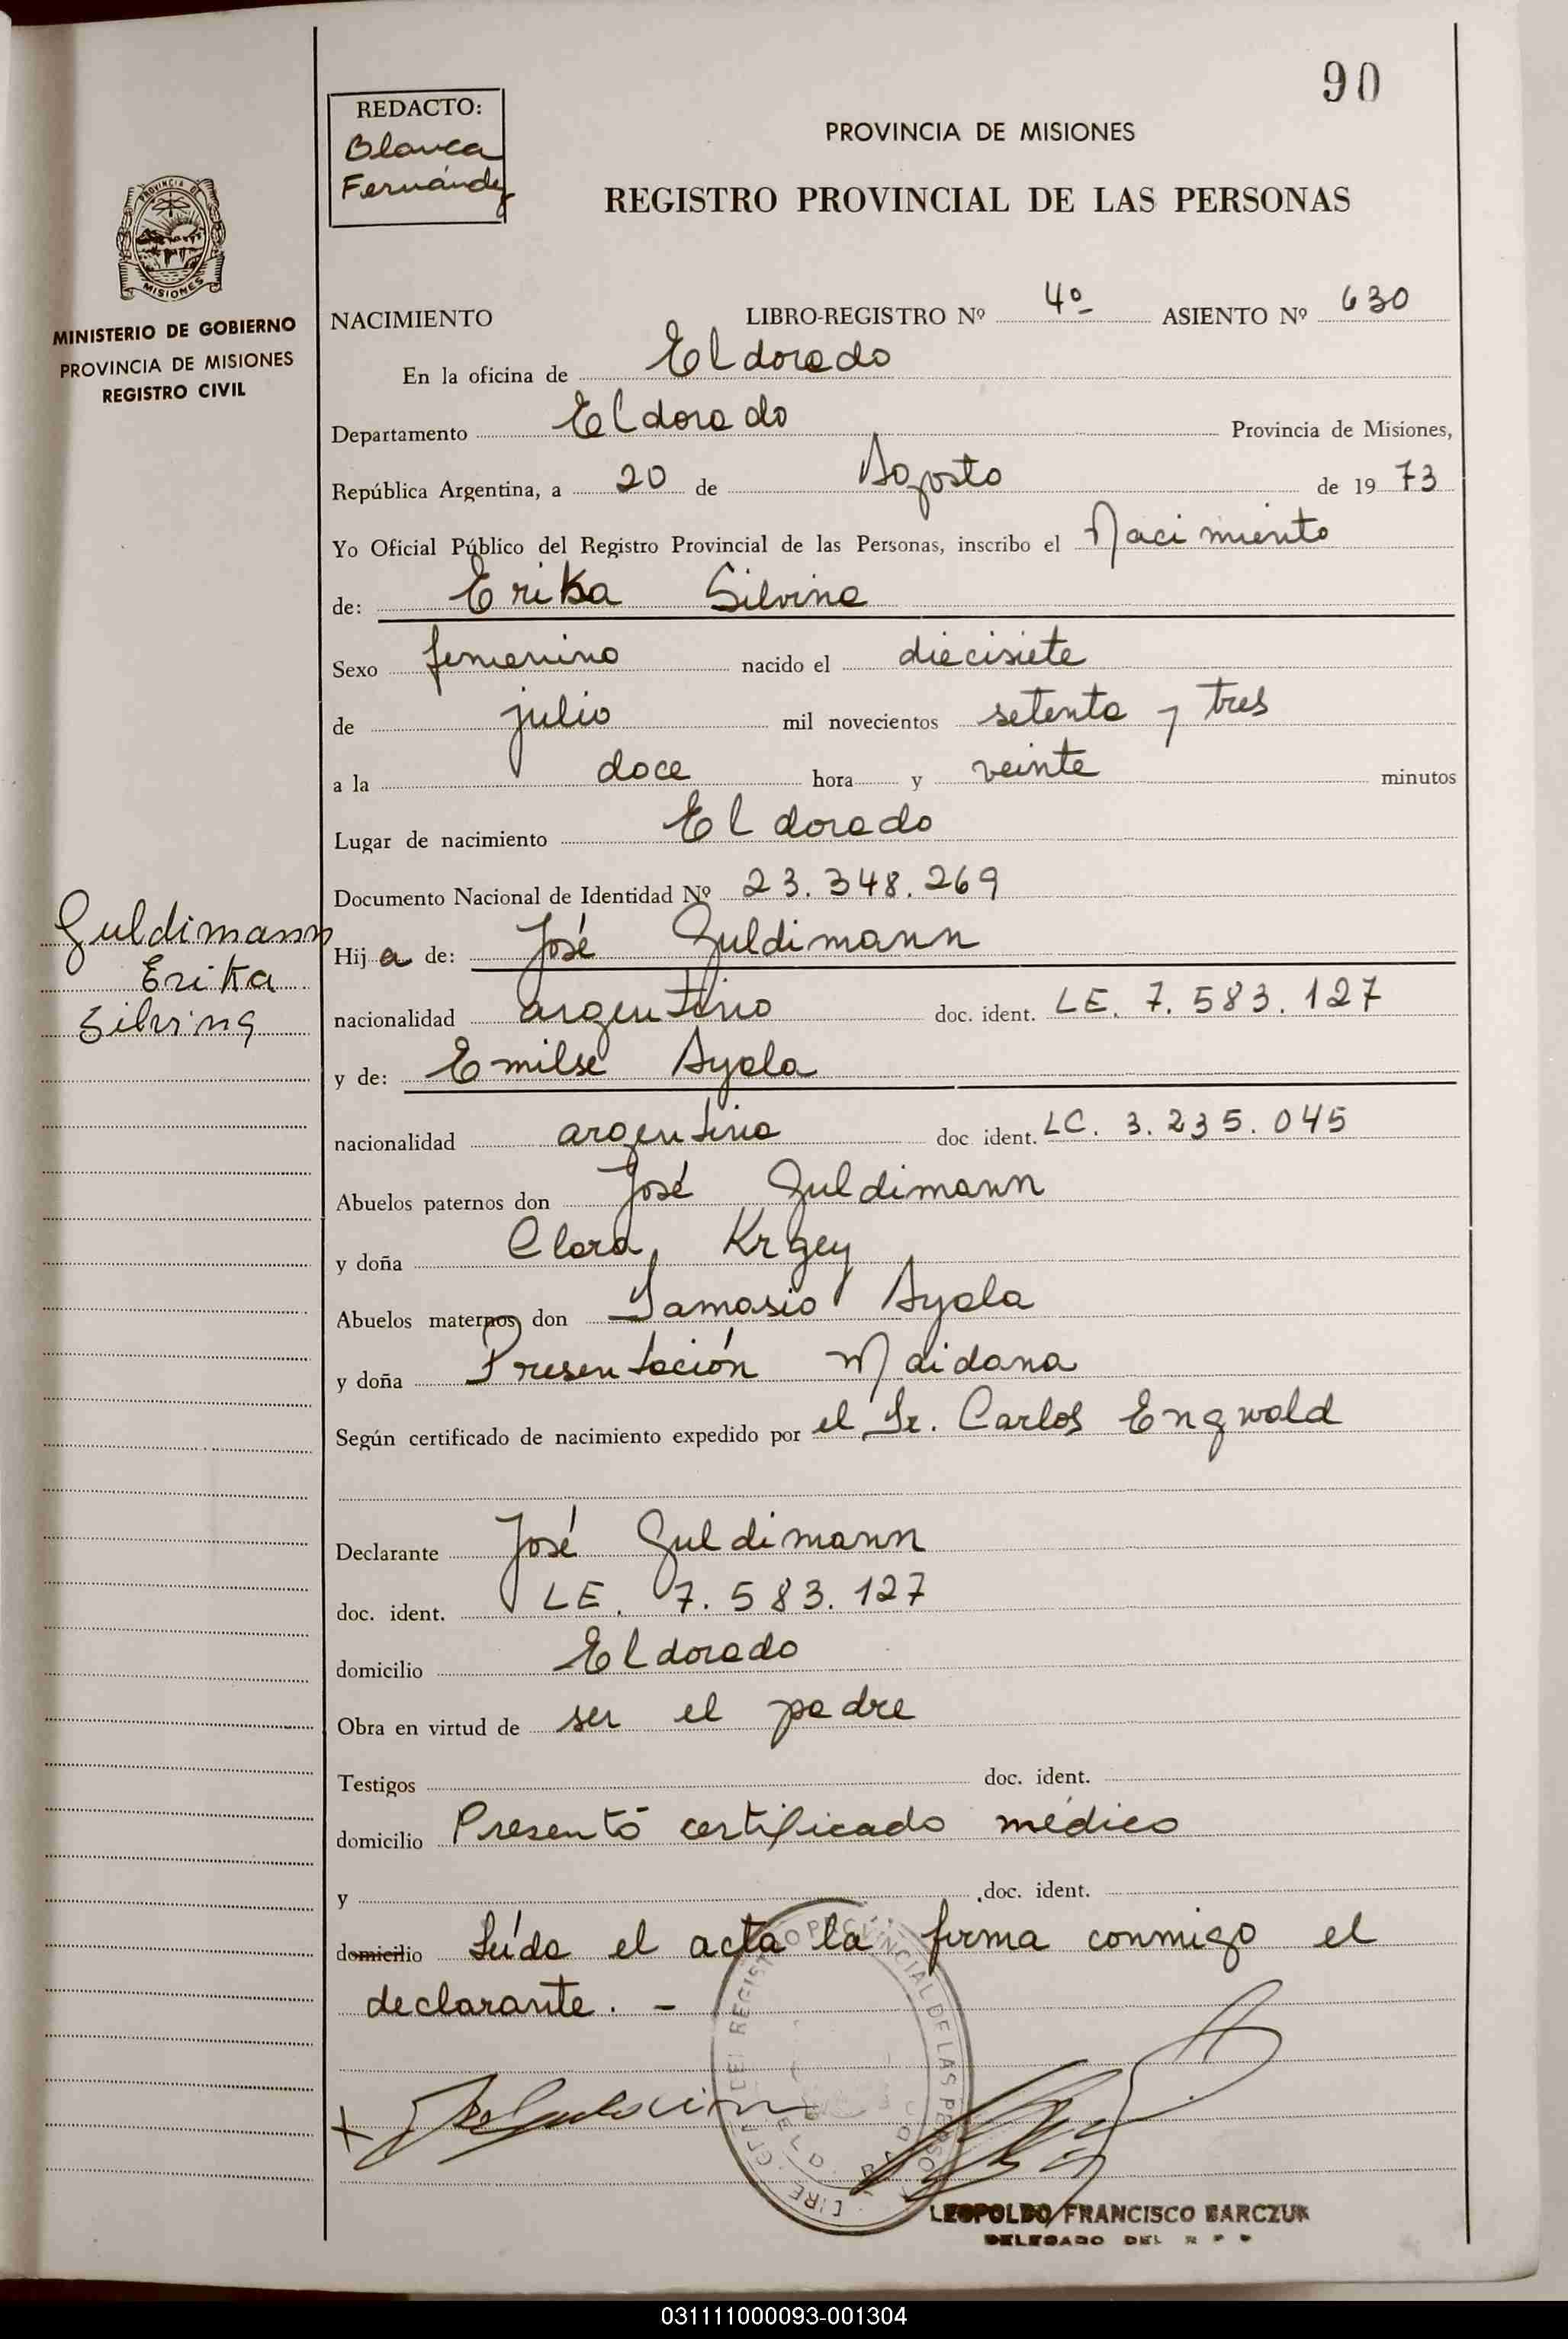 90
REDACTO:
Blanca
Fernández
PROVINCIA DE MISIONES
REGISTRO PROVINCIAL DE LAS PERSONAS
PROVINCIA DE
MISIONES
MINISTERIO DE GOBIERNO
PROVINCIA DE MISIONES
REGISTRO CIVIL
NACIMIENTO LIBRO-REGISTRO Nº 4º ASIENTO Nº 630
En la oficina de Eldorado
Departamento Eldorado Provincia de Misiones,
República Argentina, a 20 de Agosto de 1973
Yo Oficial Público del Registro Provincial de las Personas, inscribo el Nacimiento
de: Erika Silvina
Sexo femenino nacido el diecisiete
de julio mil novecientos setenta y tres
a la doce hora y veinte minutos
Lugar de nacimiento Eldorado
Documento Nacional de Identidad Nº 23.348.269
Guldimann
Erika
Silvina
Hija de: José Guldimann
nacionalidad argentino doc. ident. LE. 7.583.127
y de: Emilse Ayala
nacionalidad argentina doc ident. LC. 3.235.045
Abuelos paternos don José Guldimann
y doña Clara
Abuelos maternos don Ayala
y doña Presentación Maidana
Según certificado de nacimiento expedido por el Sr. Carlos Engwald
Declarante José Guldimann
doc. ident. LE. 7.583.127
domicilio Eldorado
Obra en virtud de ser el padre
Testigos doc. ident.
domicilio Presentó certificado médico
y doc. ident.
domicilio Leída el acta la firma conmigo el
declarante. -
REGISTRO PROVINCIAL DE LAS PERSONAS
LEOPOLDO FRANCISCO BARCZUK
DELEGADO DEL R P P
031111000093-001304